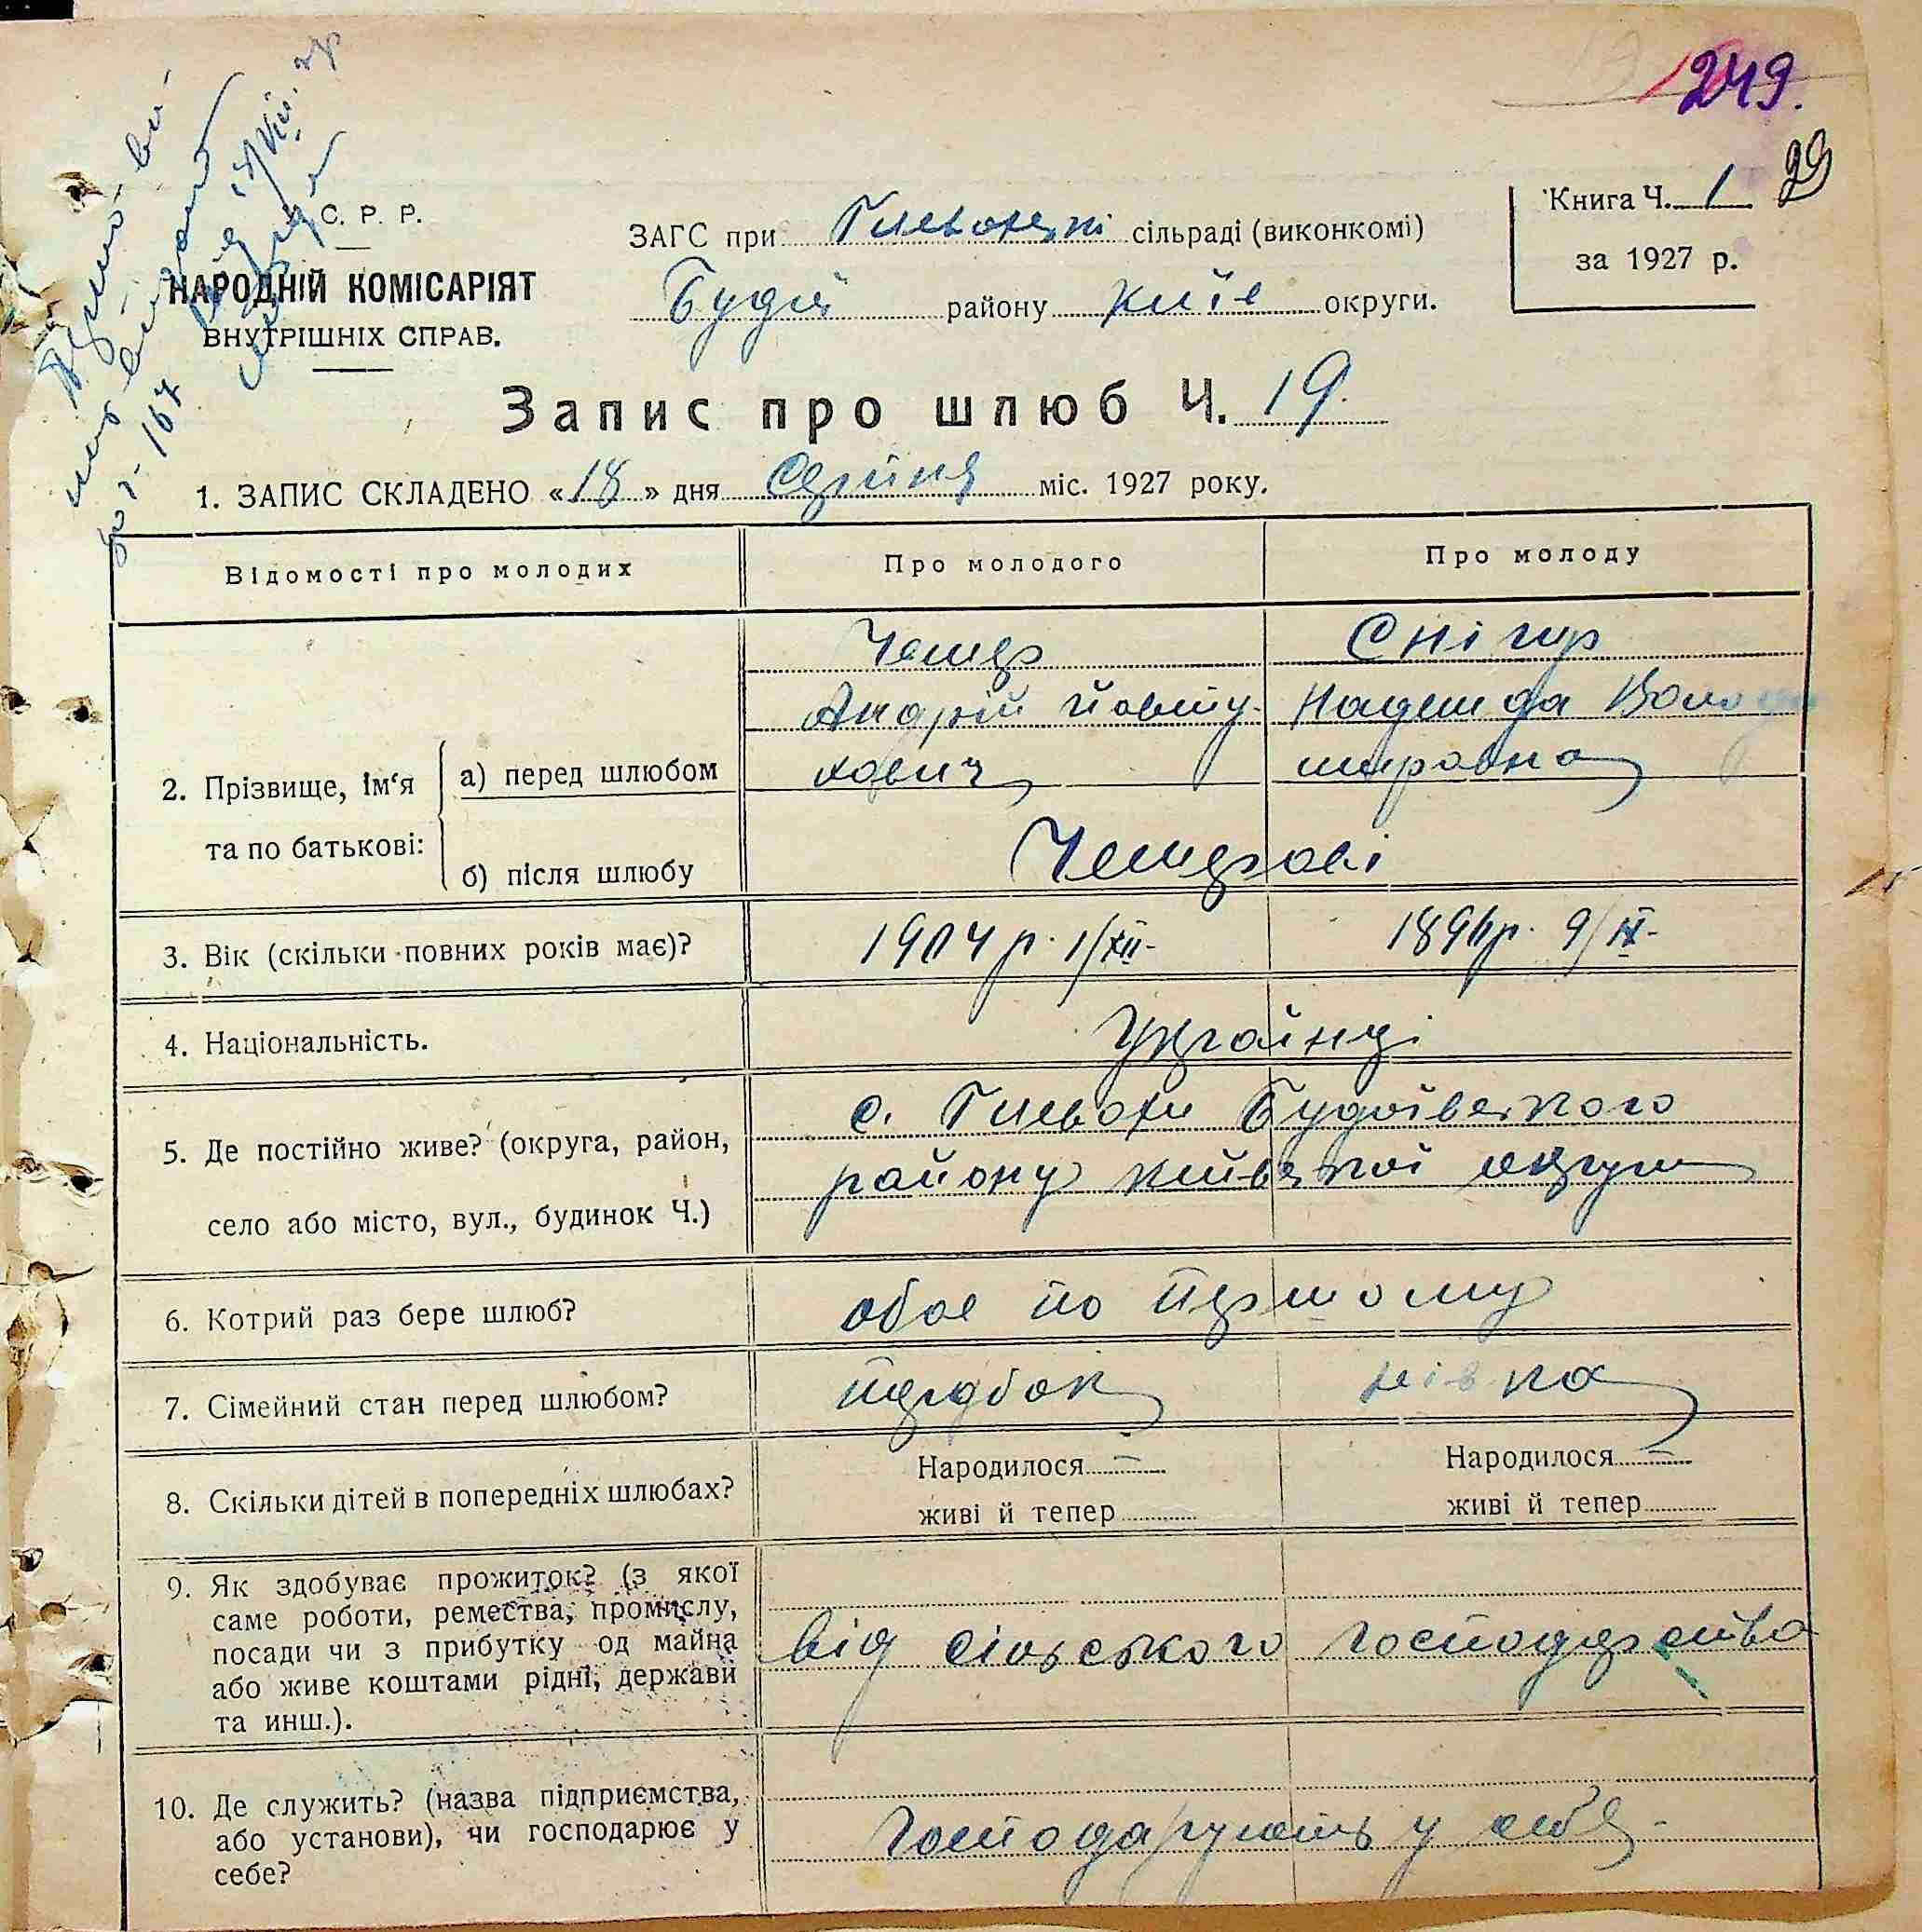 249.
29
С. Р. Р.
НАРОДНІЙ КОМІСАРІЯТ
ВНУТРІШНІХ СПРАВ.
ЗАГС при сільраді (виконкомі)
Будаї району Київ округи.
Книга Ч. 1
за 1927 р.
Запис про шлюб Ч. 19.
1. ЗАПИС СКЛАДЕНО «18» дня Серпня міс. 1927 року.
Відомості про молодих
Про молодого
Про молоду
2. Прізвище, ім'я та по батькові:
а) перед шлюбом
Чемер
Андрій Йовту-
хович
Снігир
Надежда Волод
имировна
б) після шлюбу
Чемерові
3. Вік (скільки повних років має)?
1904 р. 1/XII-
р. 9/IX-
4. Національність.
Українці
5. Де постійно живе? (округа, район,
село або місто, вул., будинок Ч.)
с. Будаївського
району Київської округи
6. Котрий раз бере шлюб?
обоє по першому
7. Сімейний стан перед шлюбом?
парубок
дівка
8. Скільки дітей в попередніх шлюбах?
Народилося -
живі й тепер
Народилося -
живі й тепер
9. Як здобуває прожиток? (з якої
саме роботи, ремества, промислу,
посади чи з прибутку од майна
або живе коштами рідні, держави
та инш.).
від сільського господарства
10. Де служить? (назва підприємства,
або установи), чи господарює у
себе?
Господарують у себе.-